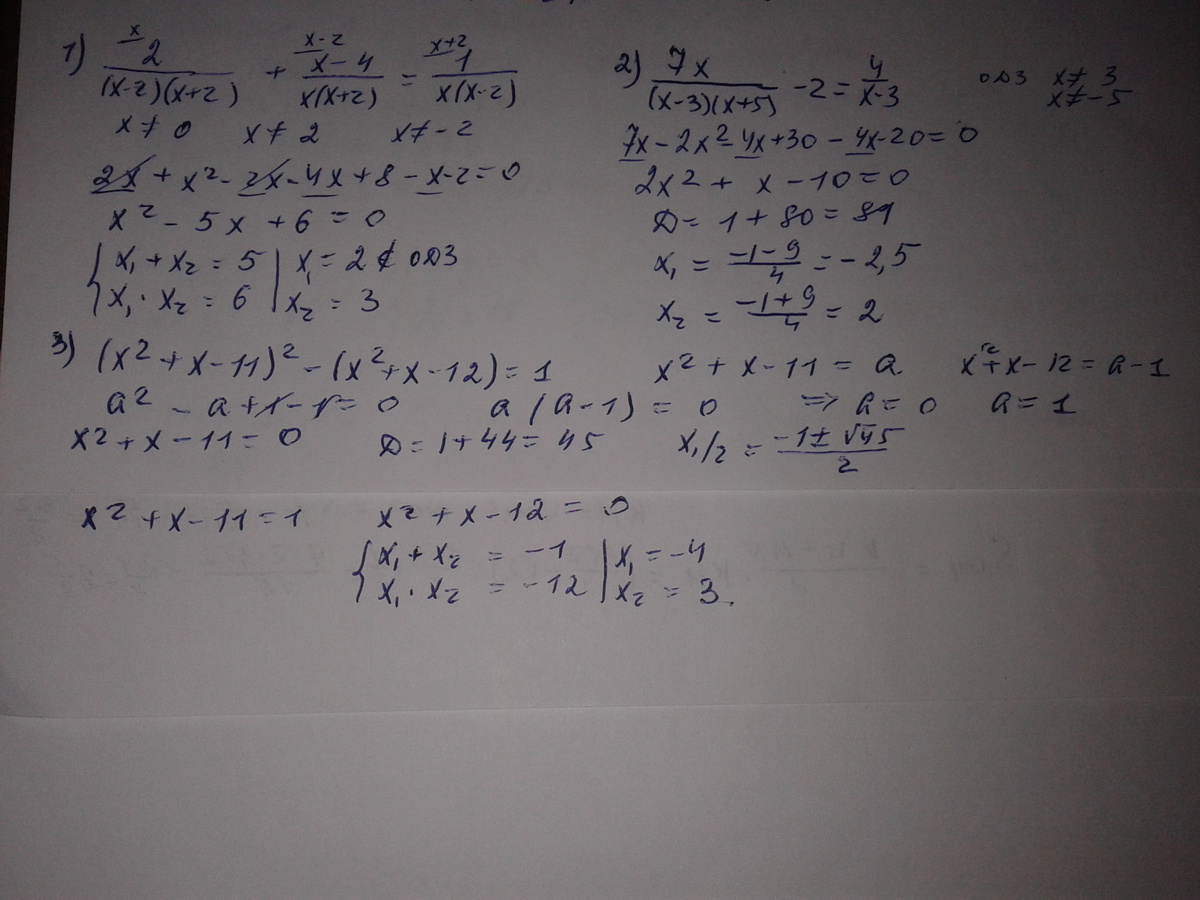 1) x 2/((x-2)(x+2)) + x-2 (x-4)/(x(x+2)) = x+2 1/(x(x-2))
x≠0 x≠2 x≠-2
2x + x² - 2x - 4x + 8 - x - 2 = 0
x² - 5x + 6 = 0
{ x₁ + x₂ = 5 | x₁ = 2 ∉ ОДЗ
{ x₁ · x₂ = 6 | x₂ = 3
2) 7x/((x-3)(x+5)) - 2 = 4/(x-3) ОДЗ x≠3
x≠-5
7x - 2x² - 4x + 30 - 4x - 20 = 0
2x² + x - 10 = 0
D = 1 + 80 = 81
x₁ = (-1-9)/4 = -2,5
x₂ = (-1+9)/4 = 2
3) (x² + x - 11)² - (x² + x - 12) = 1 x² + x - 11 = a x² + x - 12 = a - 1
a² - a + 1 - 1 = 0 a(a-1) = 0 => a = 0 a = 1
x² + x - 11 = 0 D = 1 + 44 = 45 x₁/₂ = (-1±√45)/2
x² + x - 11 = 1 x² + x - 12 = 0
{ x₁ + x₂ = -1 | x₁ = -4
{ x₁ · x₂ = -12 | x₂ = 3.